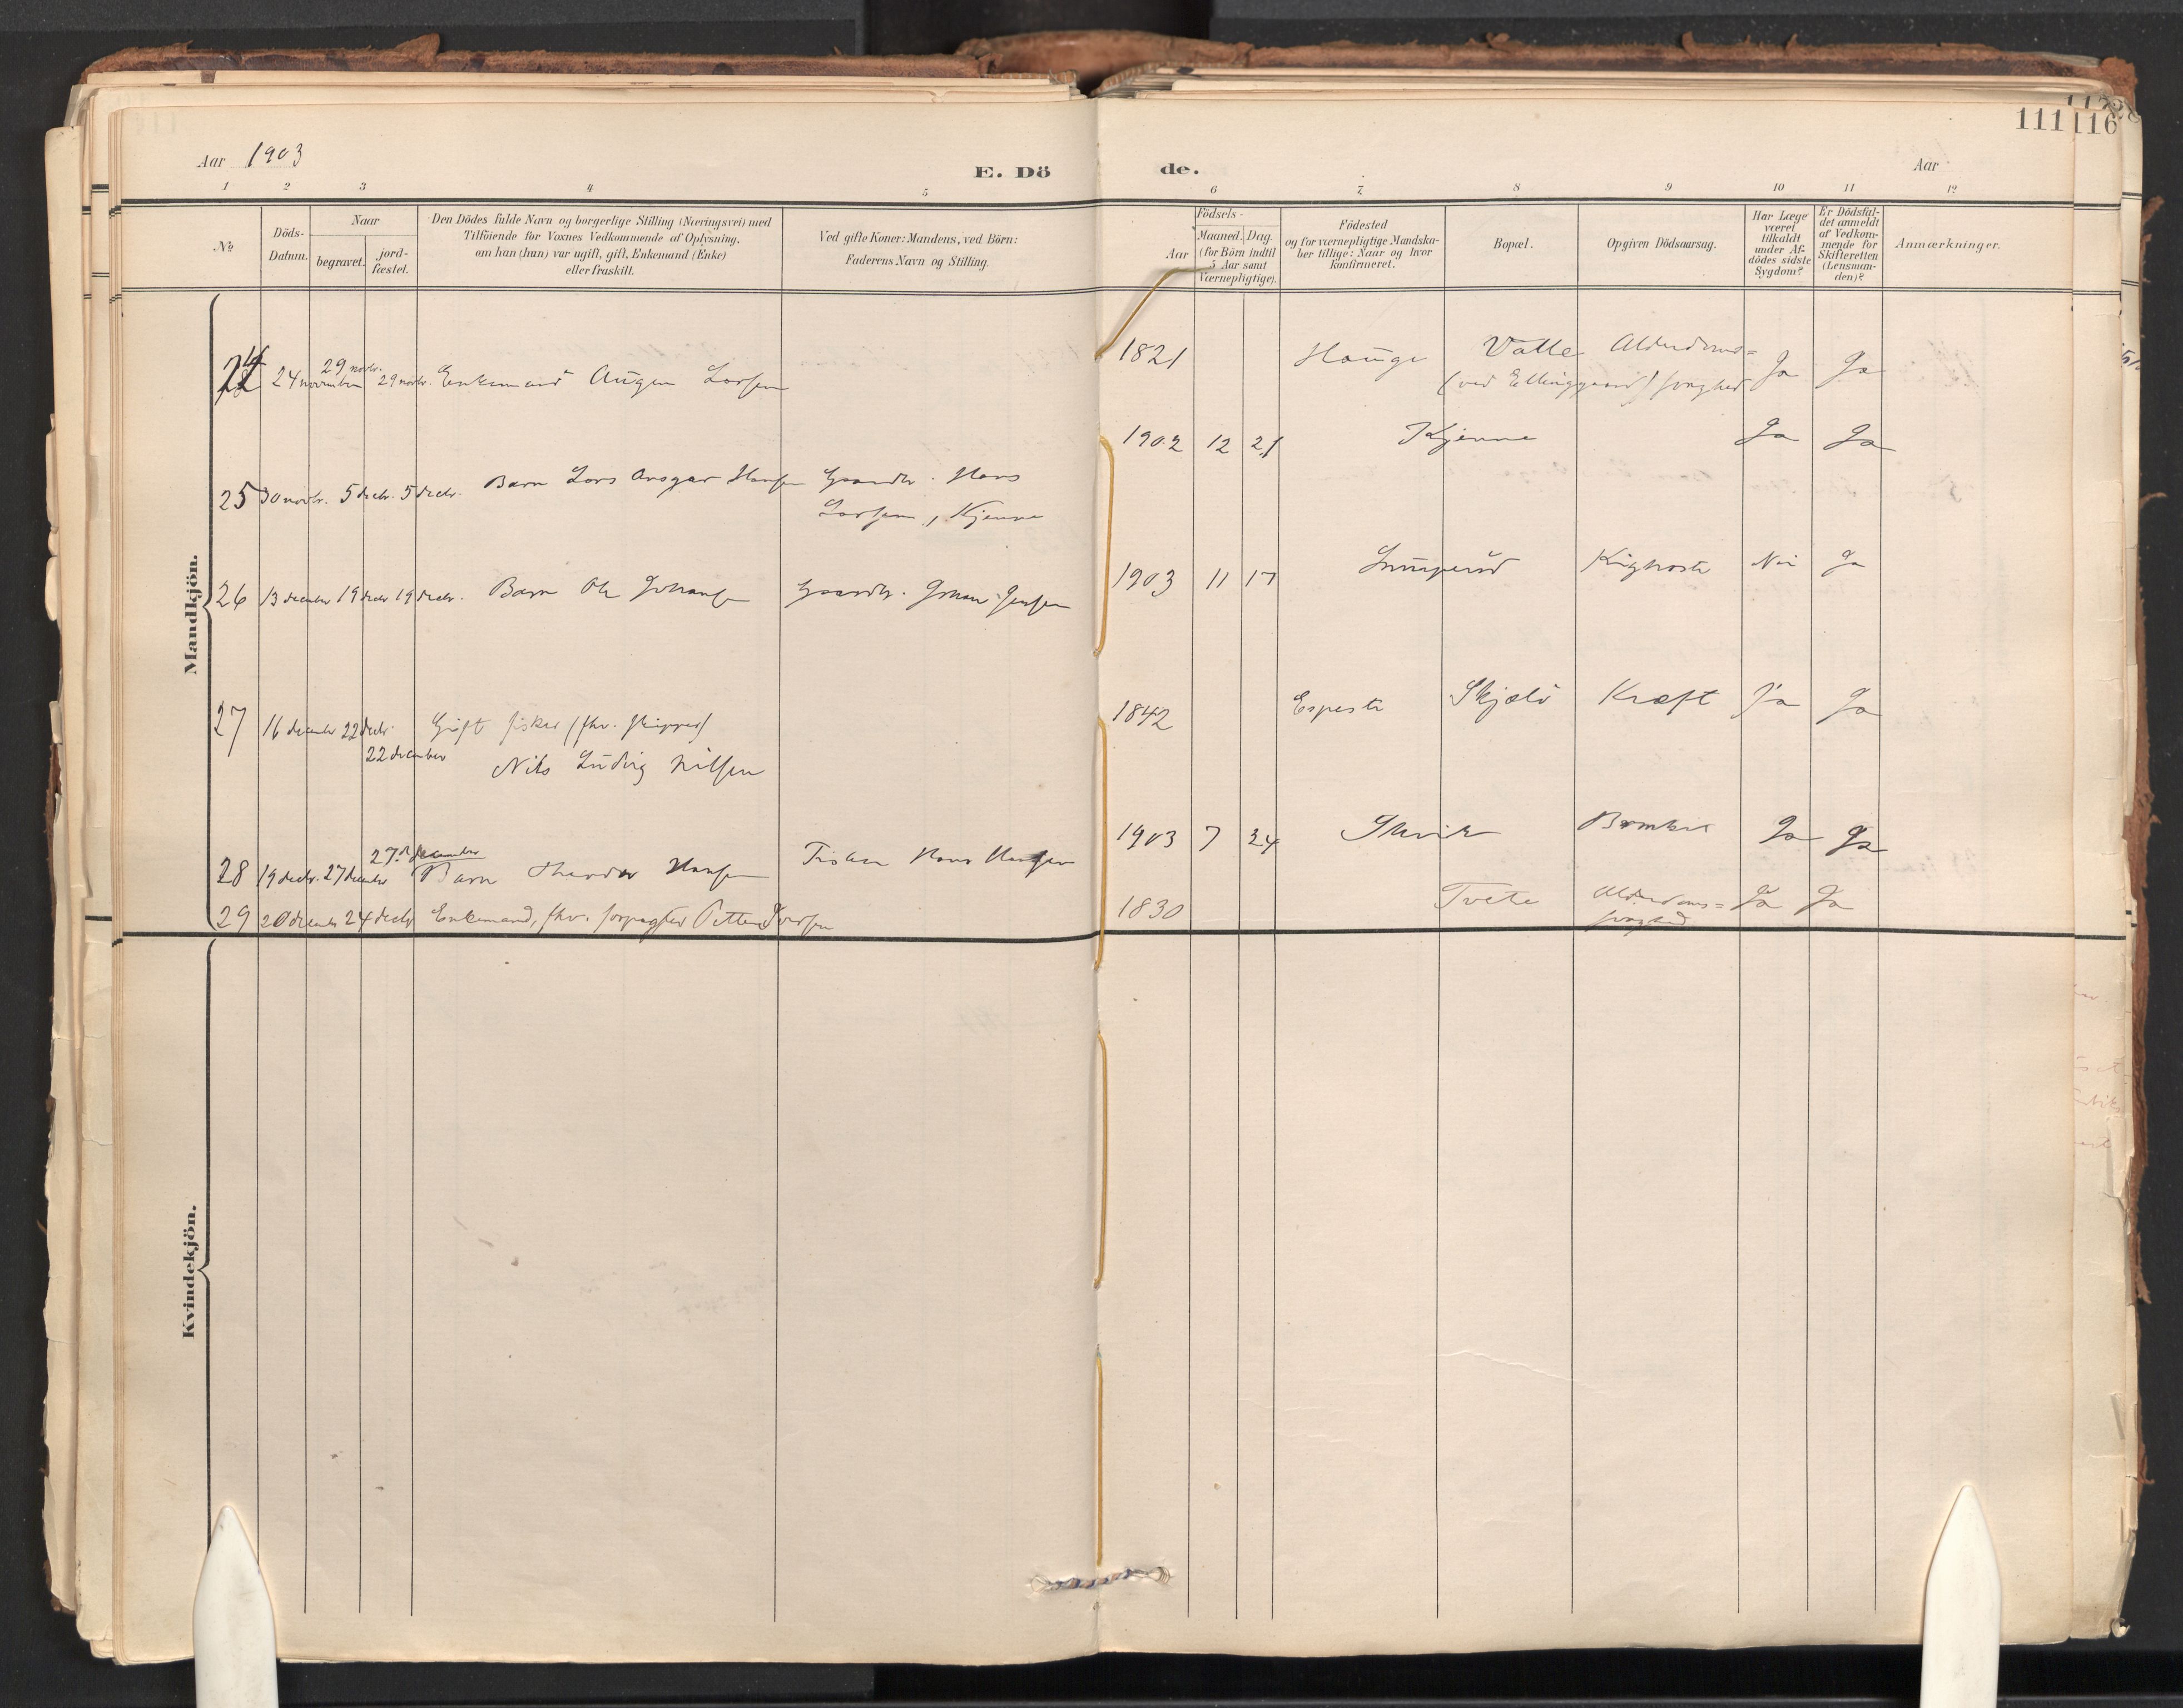 111 116
Aar 1903
E. Dö de.
Aar
1 2 3 4 5 6 7 8 9 10 11 12
№
Döds-
Datum.
Naar
begravet.
jord-
fæstet.
Den Dödes fulde Navn og borgerlige Stilling (Næringsvei) med
Tilföiende for Voxnes Vedkommende af Oplysning,
om han (hun) var ugift, gift, Enkemand (Enke)
eller fraskilt.
Ved gifte Koner: Mandens, ved Börn:
Faderens Navn og Stilling.
Födsels-
Aar
Maaned. Dag.
(for Börn indtil
5 Aar samt
Værnepligtige).
Födested
og for værnepligtige Mandska-
ber tillige: Naar og hvor
konfirmeret.
Bopæl.
Opgiven Dödsaarsag.
Har Læge
været
tilkaldt
under Af-
dödes sidste
Sygdom?
Er Dödsfal-
det anmeldt
af Vedkom-
mende for
Skifteretten
(Lensman-
den)?
Anmærkninger.
Mandkjön.
24 24 november 29 novbr. 29 novbr. Enkemand Augen Larsen 1821 Hauge Valle Alderdoms=
(ved Ellinggaard) svaghed Ja Ja
25 30 novbr. 5 decbr. 5 decbr. Barn Lars Ansgar Hansen Gaardbr. Hans
Larsen, Kjenne 1902 12 21 Kjenne Ja Ja
26 13 december 19 decbr 19 decbr. Barn Ole Johansen Gaardbr. Johan Jensen 1903 11 17 Kighoste Nei Ja
27 16 december 22 decbr. Gift fisker (fhv. skipper) 1842 Skjælö Kræft Ja Ja
22 december Nils Ludvig Nilsen
27de december
28 19 decbr. 27 december Barn Hansen Fisker Hans Hansen 1903 7 24 Ja Ja
29 20 december 24 decbr Enkemand, fhv. forpagter Petter Iversen 1830 Tvete Alderdoms= Ja Ja
svaghed
Kvindekjön.